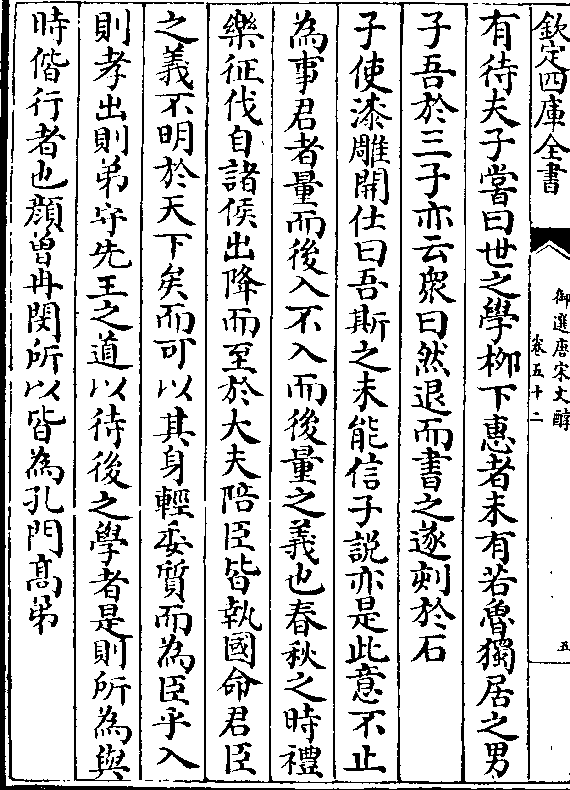 欽定四庫全書
御選唐宋文醇
卷五十二
五
有待夫子嘗曰世之學栁下惠者未有若魯獨居之男
子吾於三子亦云衆曰然退而書之遂刻於石
子使漆雕開仕曰吾斯之未能信子説亦是此意不止
為事君者量而後入不入而後量之義也春秋之時禮
樂征伐自諸侯出降而至於大夫陪臣皆執國命君臣
之義不明於天下矣而可以其身輕委質而為臣乎入
則孝出則弟守先王之道以待後之學者是則所為與
時偕行者也顔曾冉閔所以皆為孔門髙弟